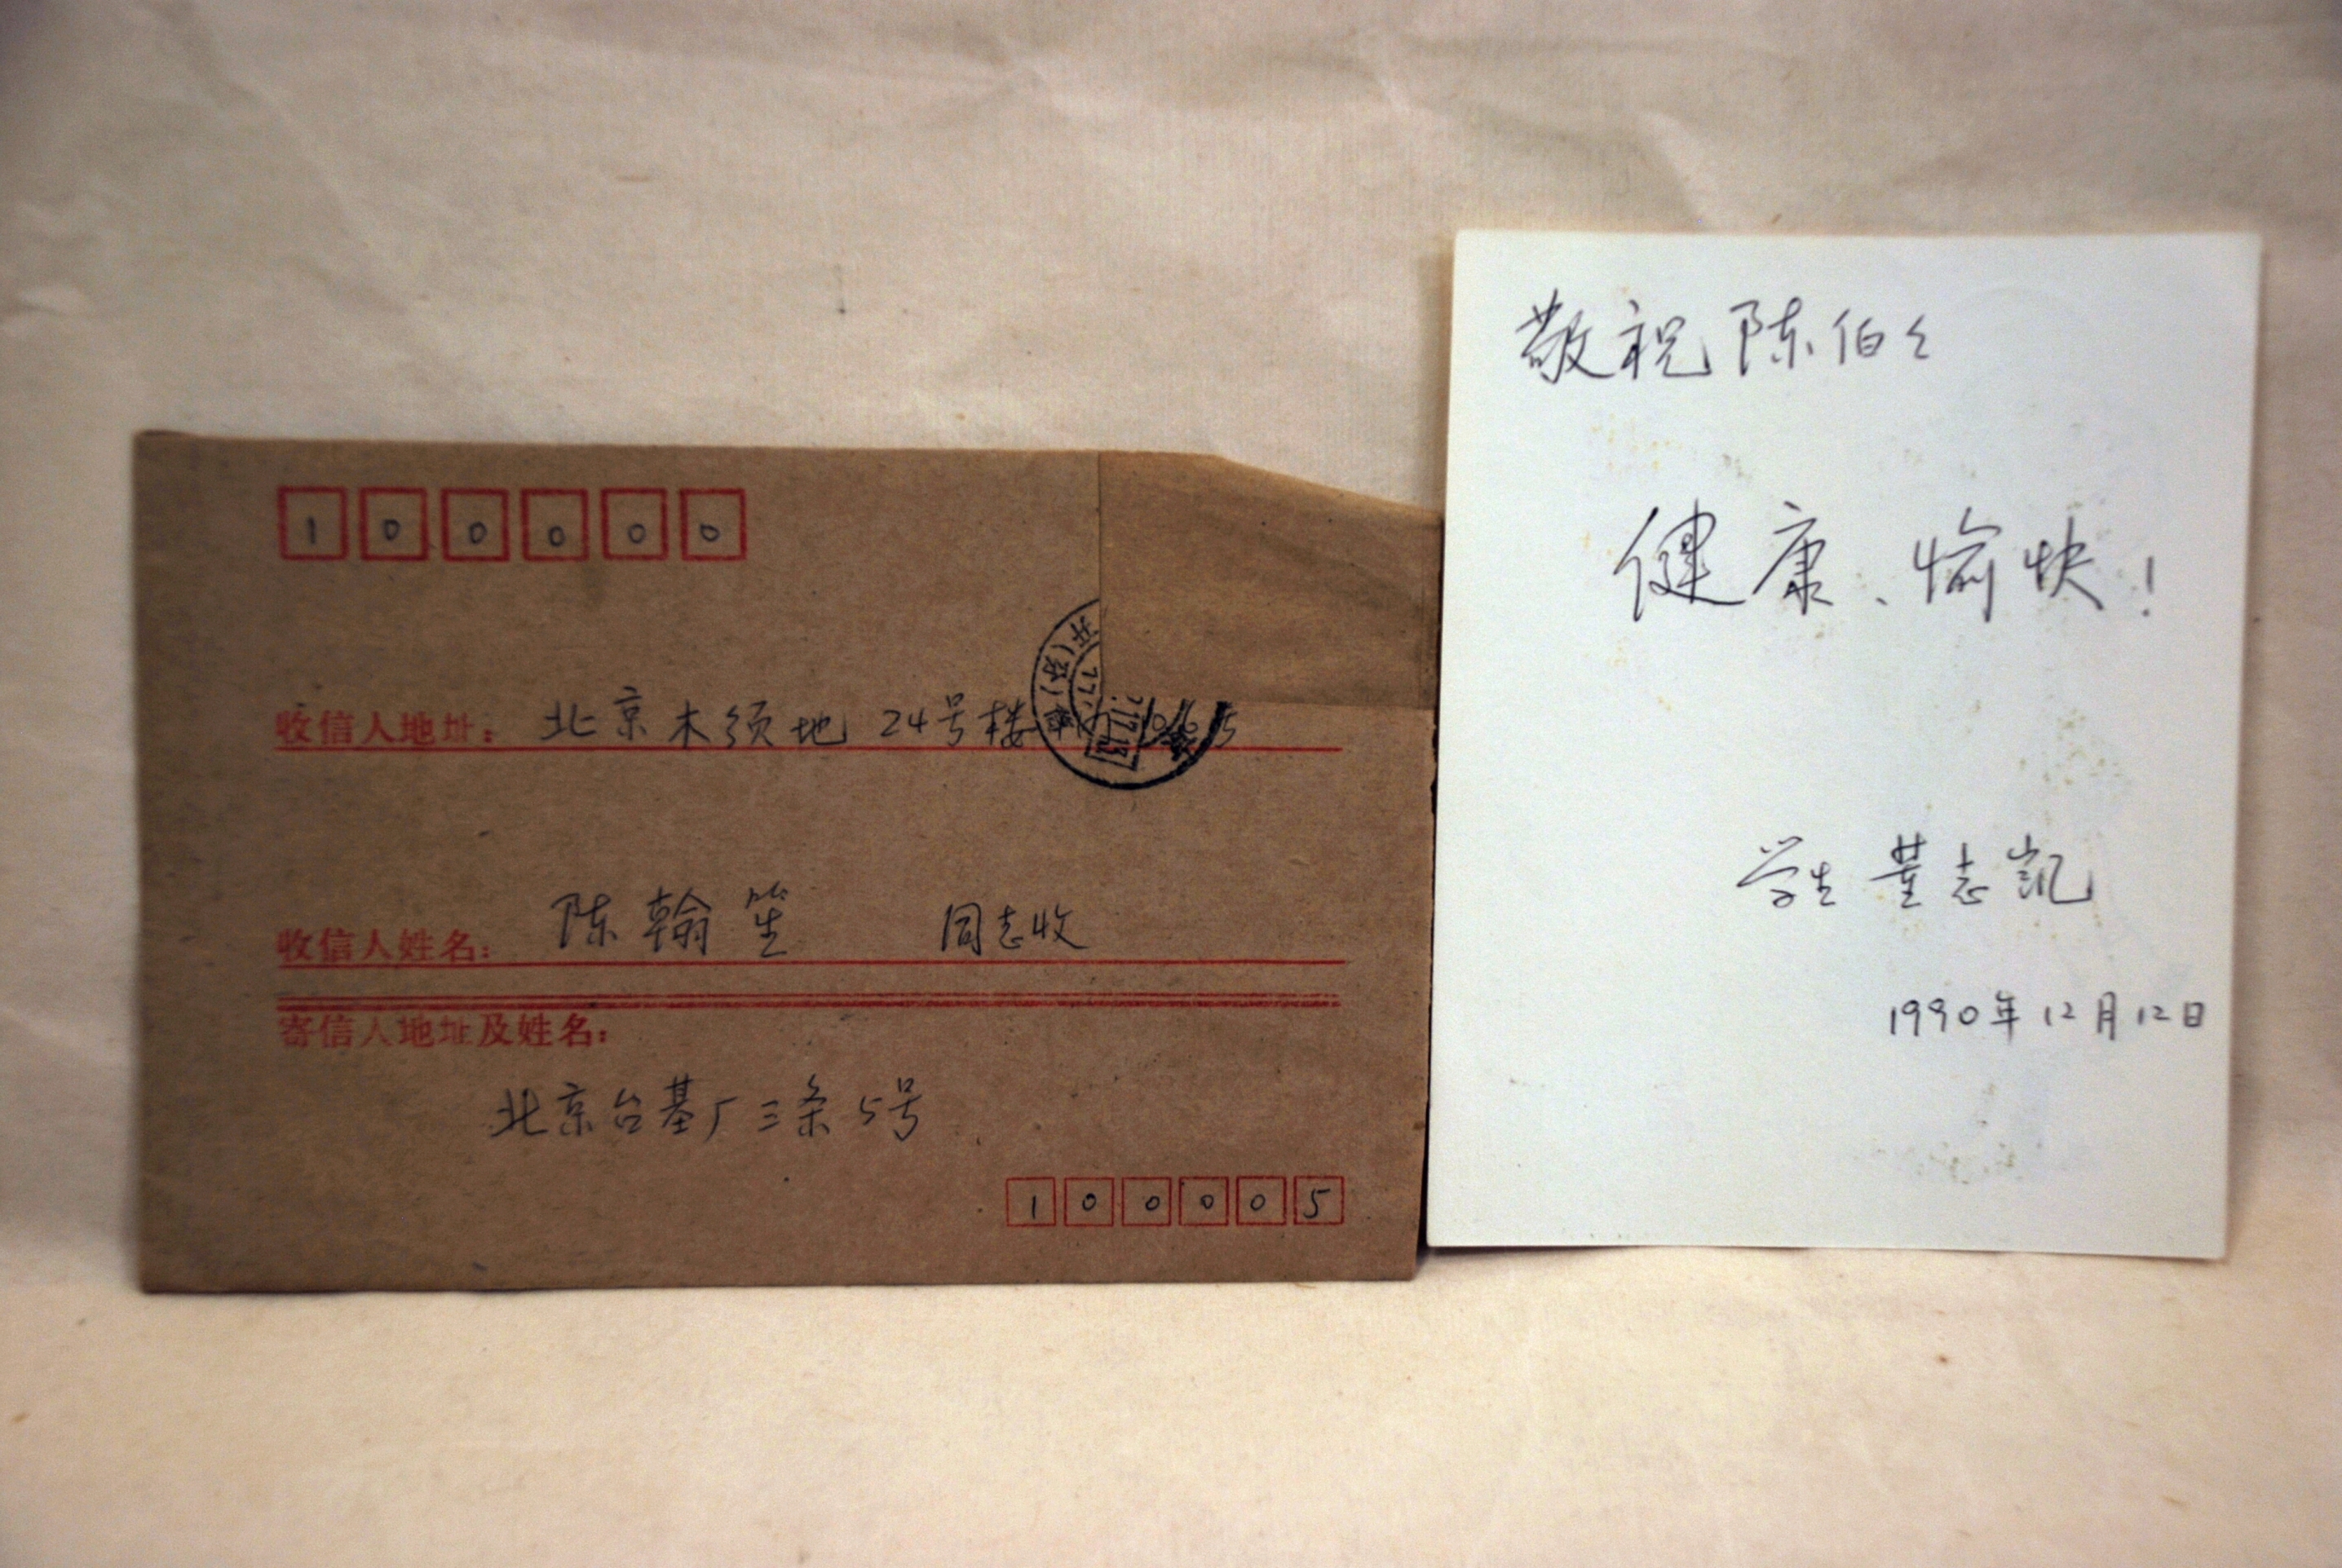 100000
收信人地址：北京木须地 24号楼
收信人姓名：陈翰笙 同志收
寄信人地址及姓名：
北京台基厂三条5号
100005
敬祝陈伯々
健康、愉快！
学生 董志凯
1990年12月12日